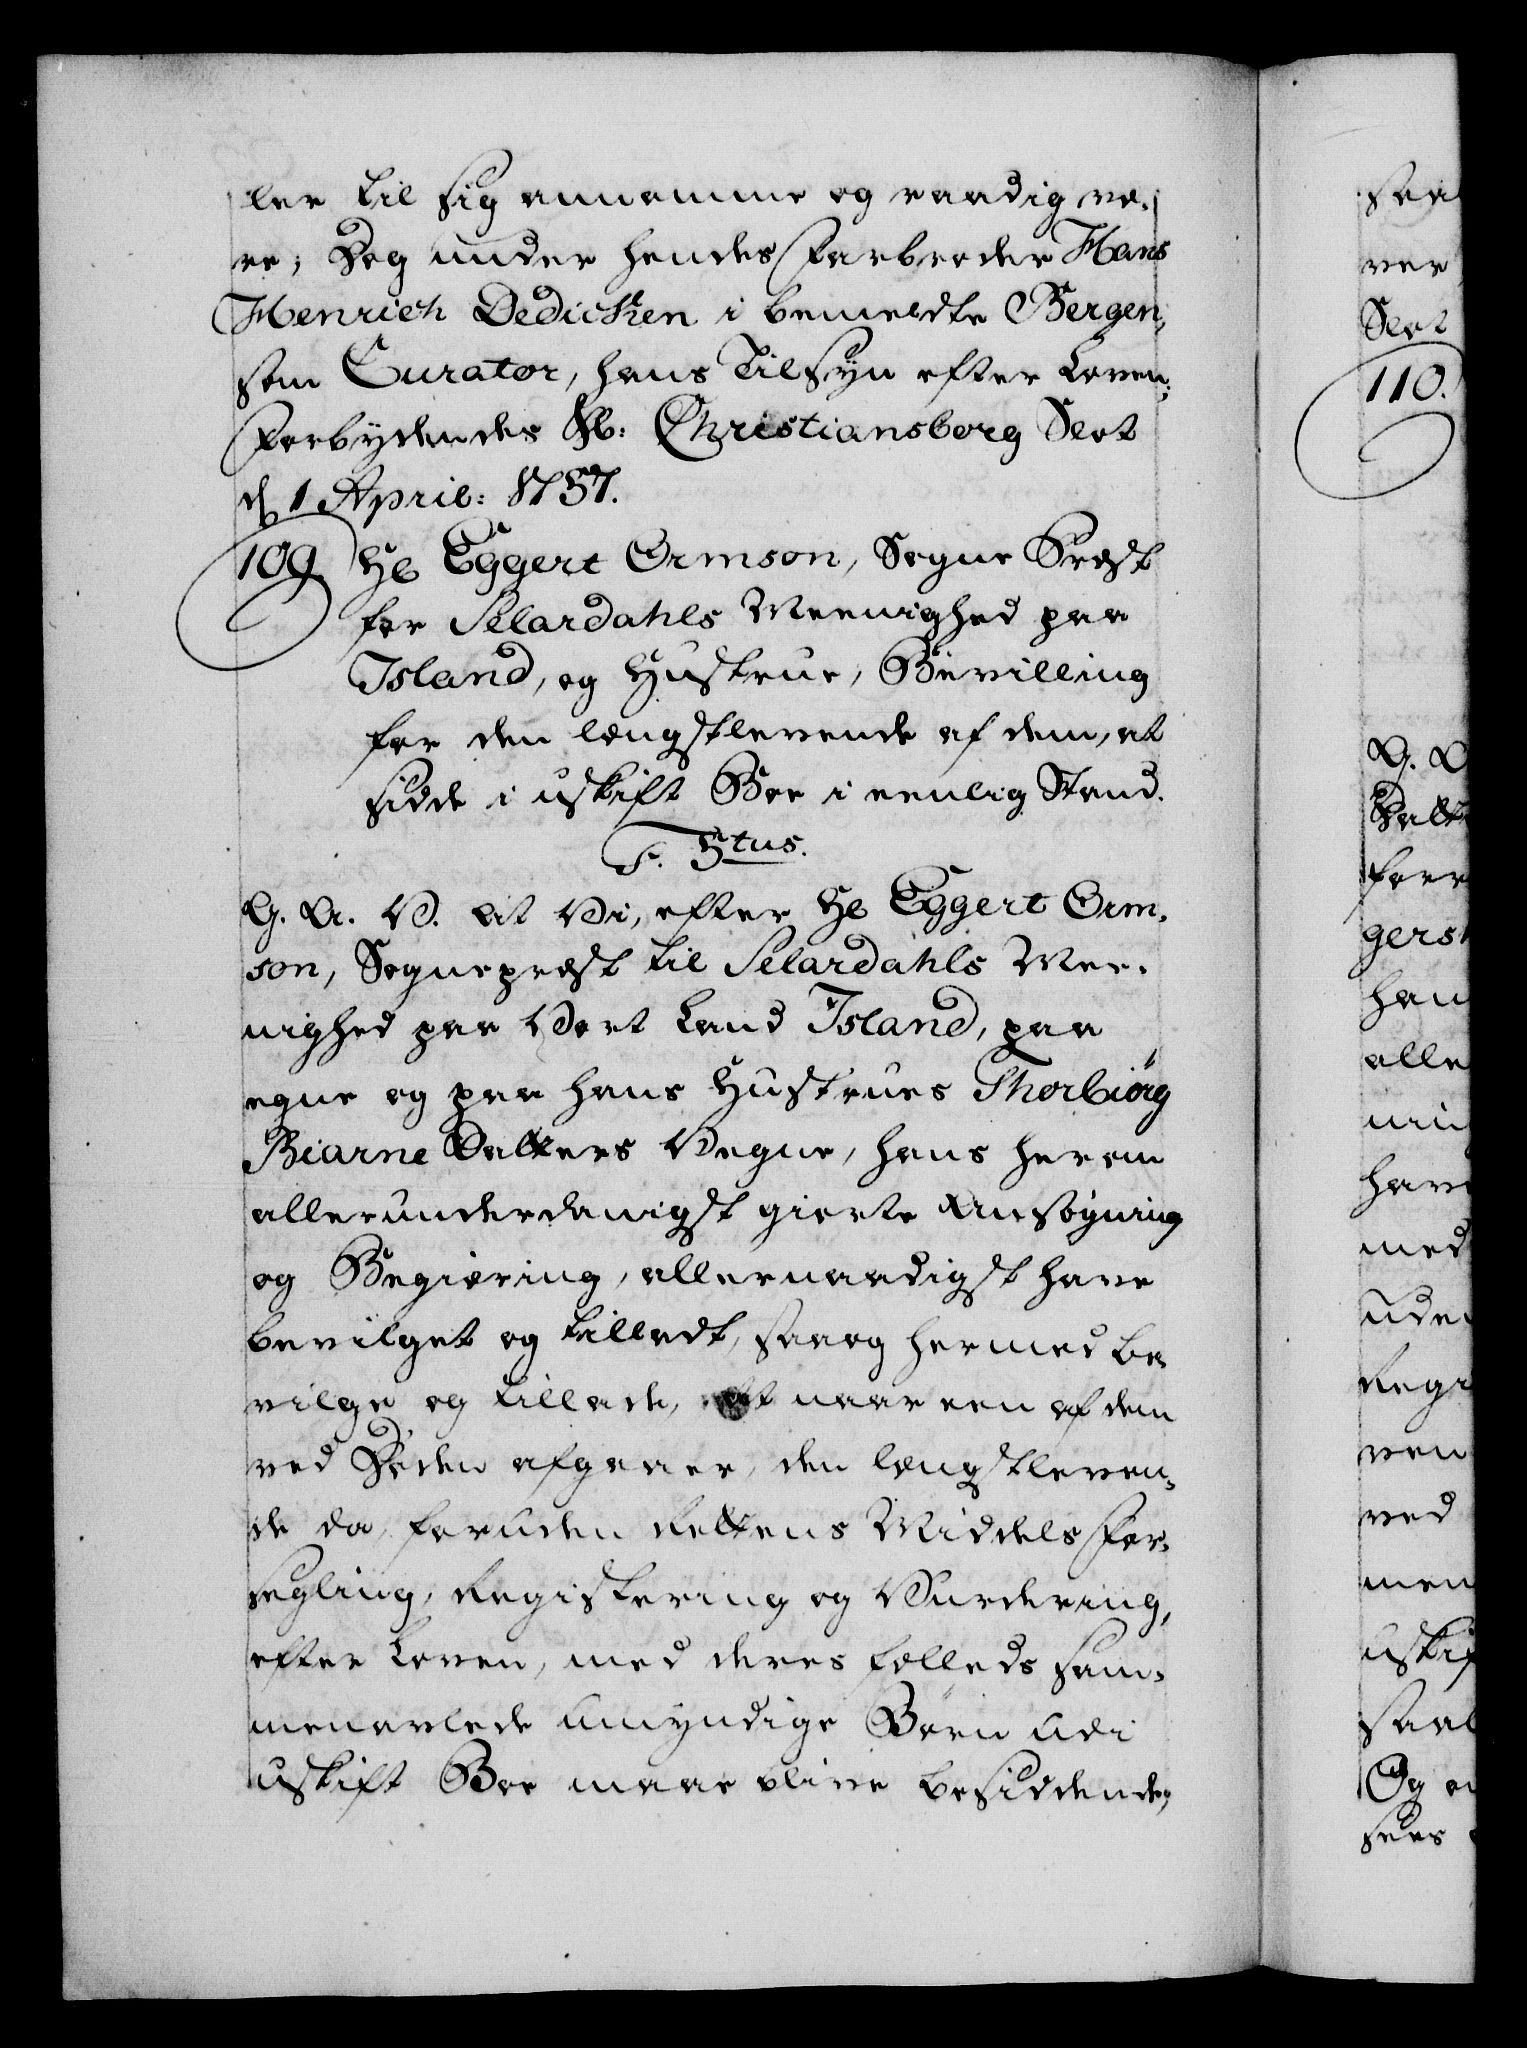 ler til sig annamme og raadig væ-
re; Dog under hendes Farbroder Hans
Henrich Dedicken i bemeldte Bergen,
som Curator, hans Tilsyn efter Loven;
Forbydendes p: Christiansborg Slot
d 1 April: 1757.
109 Hr Eggert Ormson, Sogne Præst
for Selardahls Meenighed paa
Island, og Hustrue, Bevilling
for den længstlevende af dem, at
sidde i uskift Boe i eenlig Stand.
F. 5tus.
G. A. V. At Vi, efter Hr Eggert Orm-
son, Sognepræst til Selardahls Mee-
nighed paa Vort Land Island, paa
egne og paa hans Hustrues Thorbiørg
Biarne Datters Vegne, hans herom
allerunderdanigst giorte Ansøgning
og Begiering, allernaadigst have
bevilget og tilladt, saa og hermed be-
vilge og tillade, at naar een af dem
ved Døden afgaaer, den længstleven-
de da, foruden Rettens Middels For-
segling, Registering og Vurdering,
efter Loven, med deres fælleds sam-
menavlede umyndige Børn udi
uskift Boe maae blive besiddende,
110.